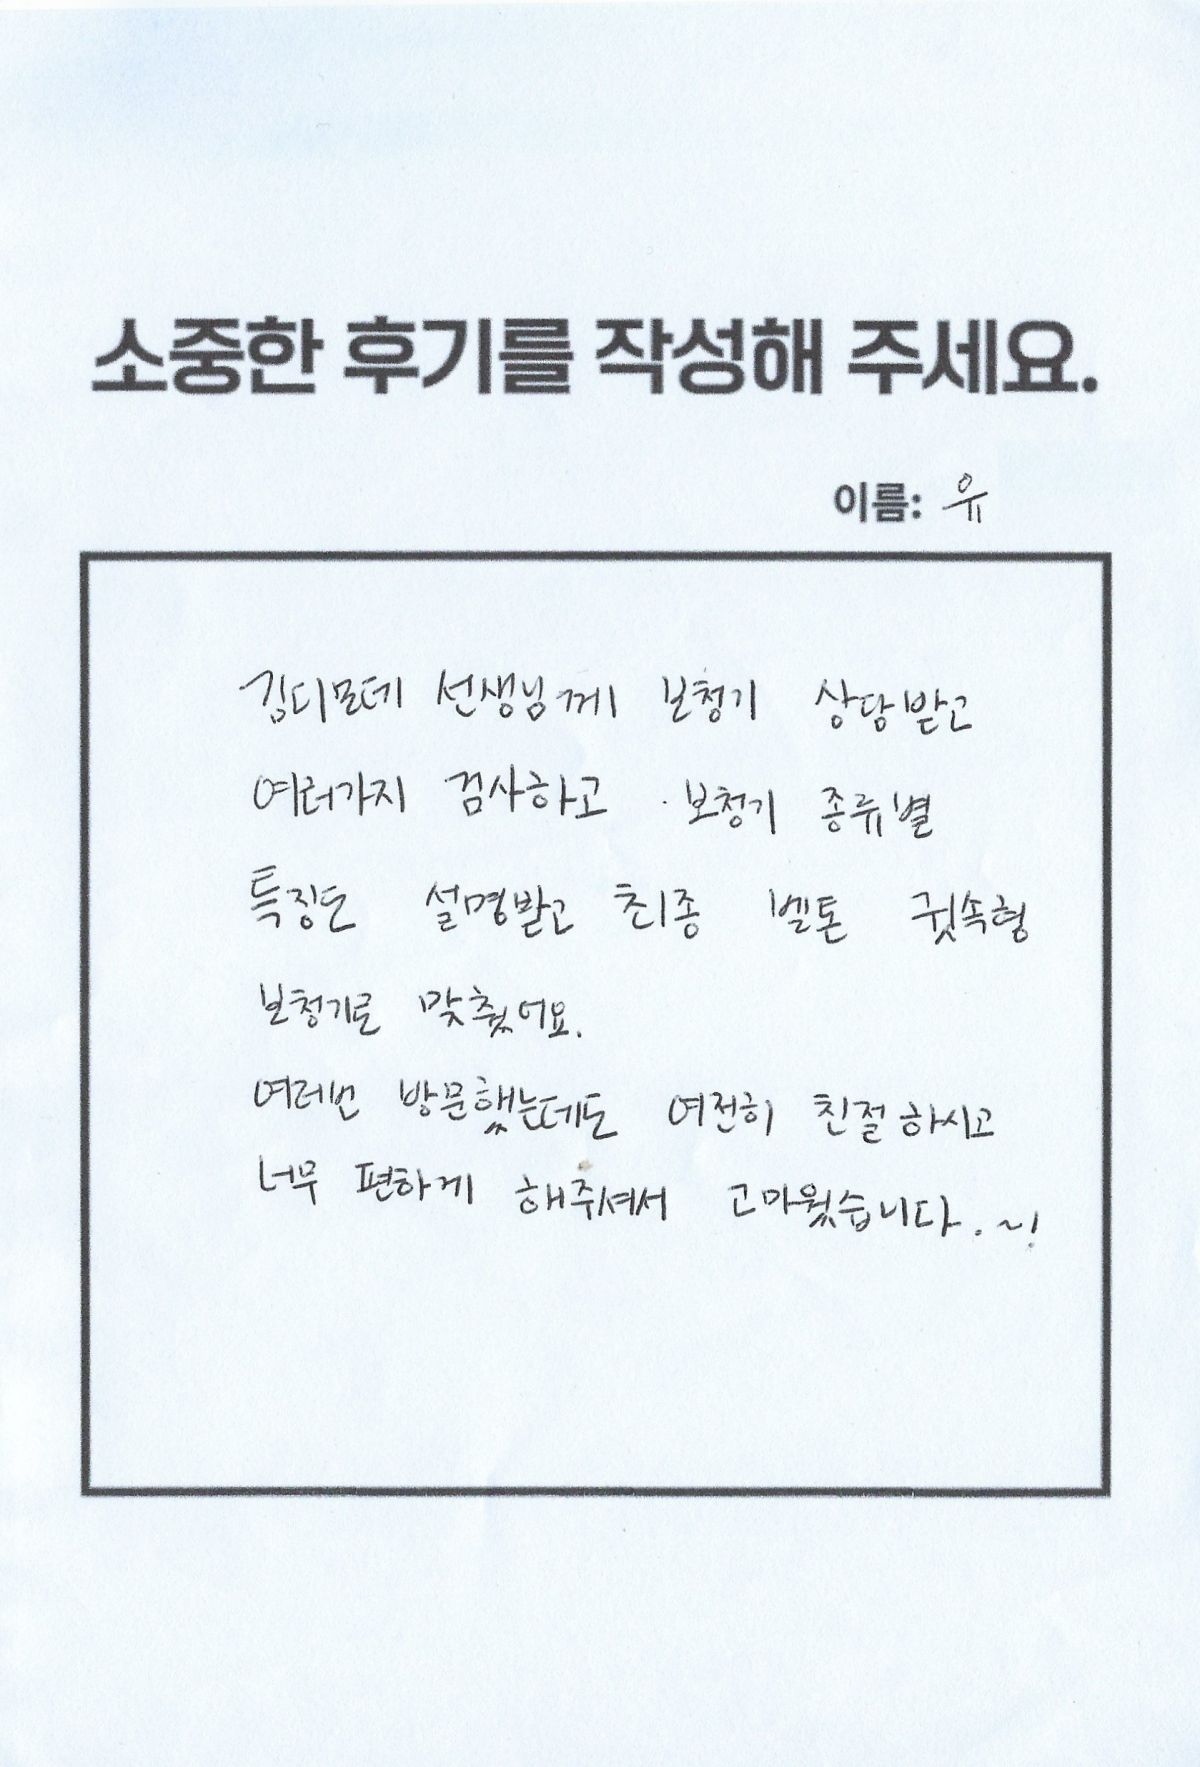 소중한 후기를 작성해 주세요.
이름: 유
김디모데 선생님께 보청기 상담받고
여러가지 검사하고 보청기 종류별
특징도 설명받고 최종 벨톤 귓속형
보청기로 맞췄어요.
여러번 방문했는데도 여전히 친절하시고
너무 편하게 해주셔서 고마웠습니다.~!